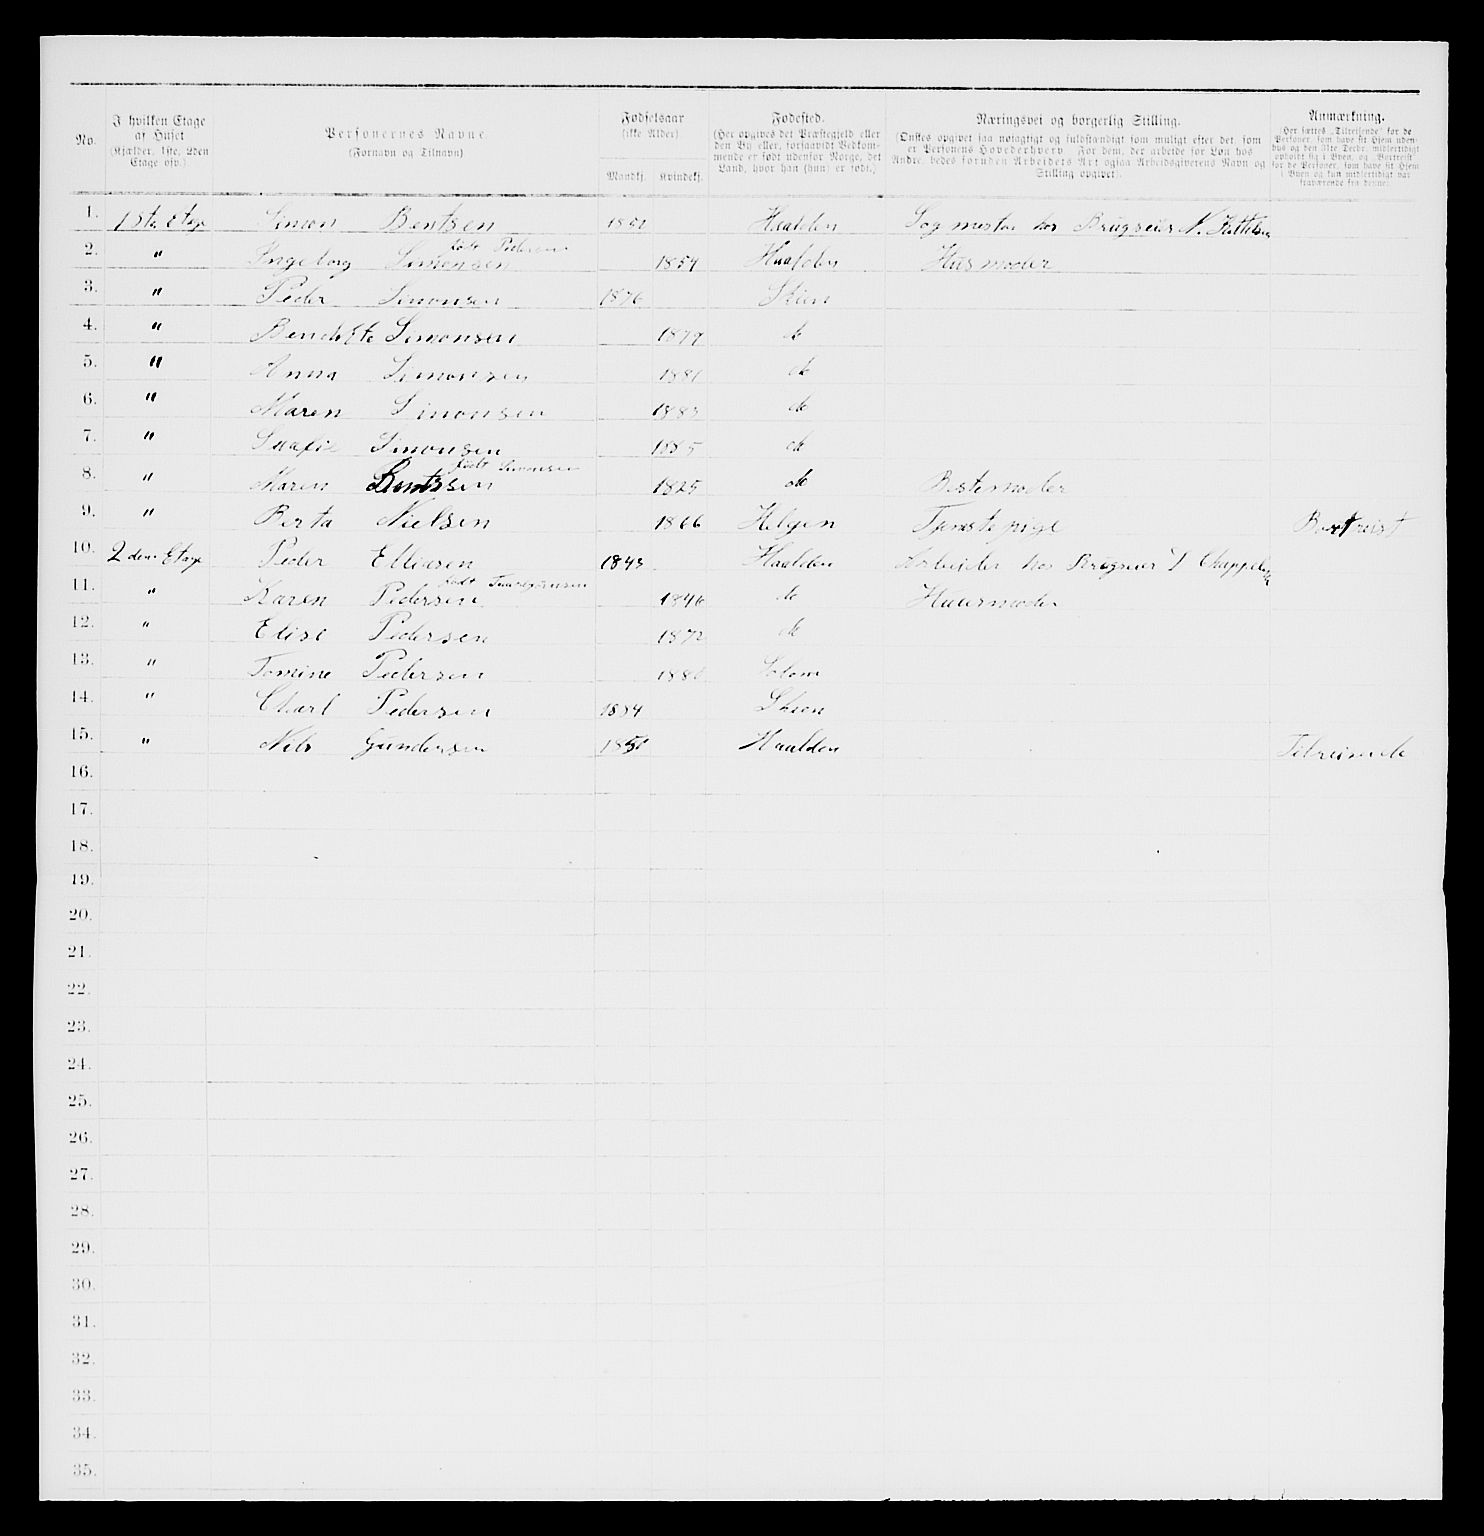 No. | I hvilken Etage af Huset (Kjælder, 1ste, 2den Etage osv.). | Personernes Navne. (Fornavn og Tilnavn) | Fødselsaar (ikke Alder). Mandkj. | Kvindekj. | Fødested. (Her opgives det Præstegjeld eller den By eller, forsaavidt Vedkommende er født udenfor Norge, det Land, hvor han (hun) er født.) | Næringsvei og borgerlig Stilling. (Ønskes opgivet saa nøiagtigt og fuldstændigt som muligt efter det, som er Personens Hovederhverv. For dem, der arbeide for Løn hos Andre, bedes foruden Arbeidets Art ogsaa Arbeidsgiverens Navn og Stilling opgivet). | Anmærkning. (Her sættes „Tilreisende" for de Personer, som have sit Hjem udenbys og den 31te Decbr. midlertidigt opholdt sig i Byen, og „Bortreist" for de Personer, som have sit Hjem i Byen og kun midlertidigt var fraværende fra denne.
1. 1ste Etage Simon Bentsen 1852 Haalden Sagmester hos Brugseier N. Kittelsen
2. " Ingeborg Simonsen født Pedersen 1854 Haalden Husmoder
3. " Peder Simonsen 1876 Skien
4. " Bendikte Simonsen 1879 do
5. " Anna Simonsen 1881 do
6. " Maren Simonsen 1883 do
7. " Simonsen 1885 do
8. " Maren Bentssen født Simonsen 1825 do Bestemoder
9. " Berta Nielsen 1866 Helgen Tjenstepige Bortreist
10. 2den Etage Peder Elliasen 1843 Haalden Arbeider hos Brugseier
11. " Karen Pedersen født 1846 do Huusmoder
12. " Elise Pedersen 1872 do
13. " Tomine Pedersen 1880 Solom
14. " Charl Pedersen 1884 Skien
15. " Nils Gundersen 1850 Haalden Tilreisende
16.
17.
18.
19.
20.
21.
22.
23.
24.
25.
26.
27.
28.
29.
30.
31.
32.
33.
34.
35.